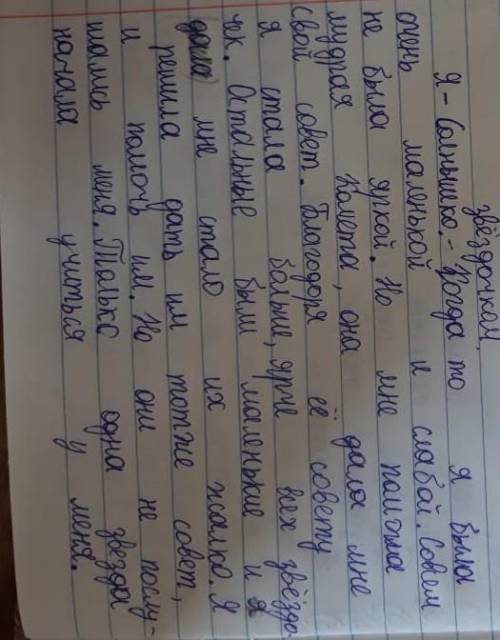 звёздочкой
Я - Солнышко. - Когда то я была
очень маленькой и слабой. Совсем
не была яркой. Но мне
мудрая Комета, она дала мне
свой совет. Благодоря её совету
я стала больше, ярче всех звёздо
чек. Остальные были маленькие и я
дала мне стало их жалко. Я
решила дать им тотже совет,
и помочь им. Но они не послу-
шались меня. Только одна звезда
начала учиться у меня.